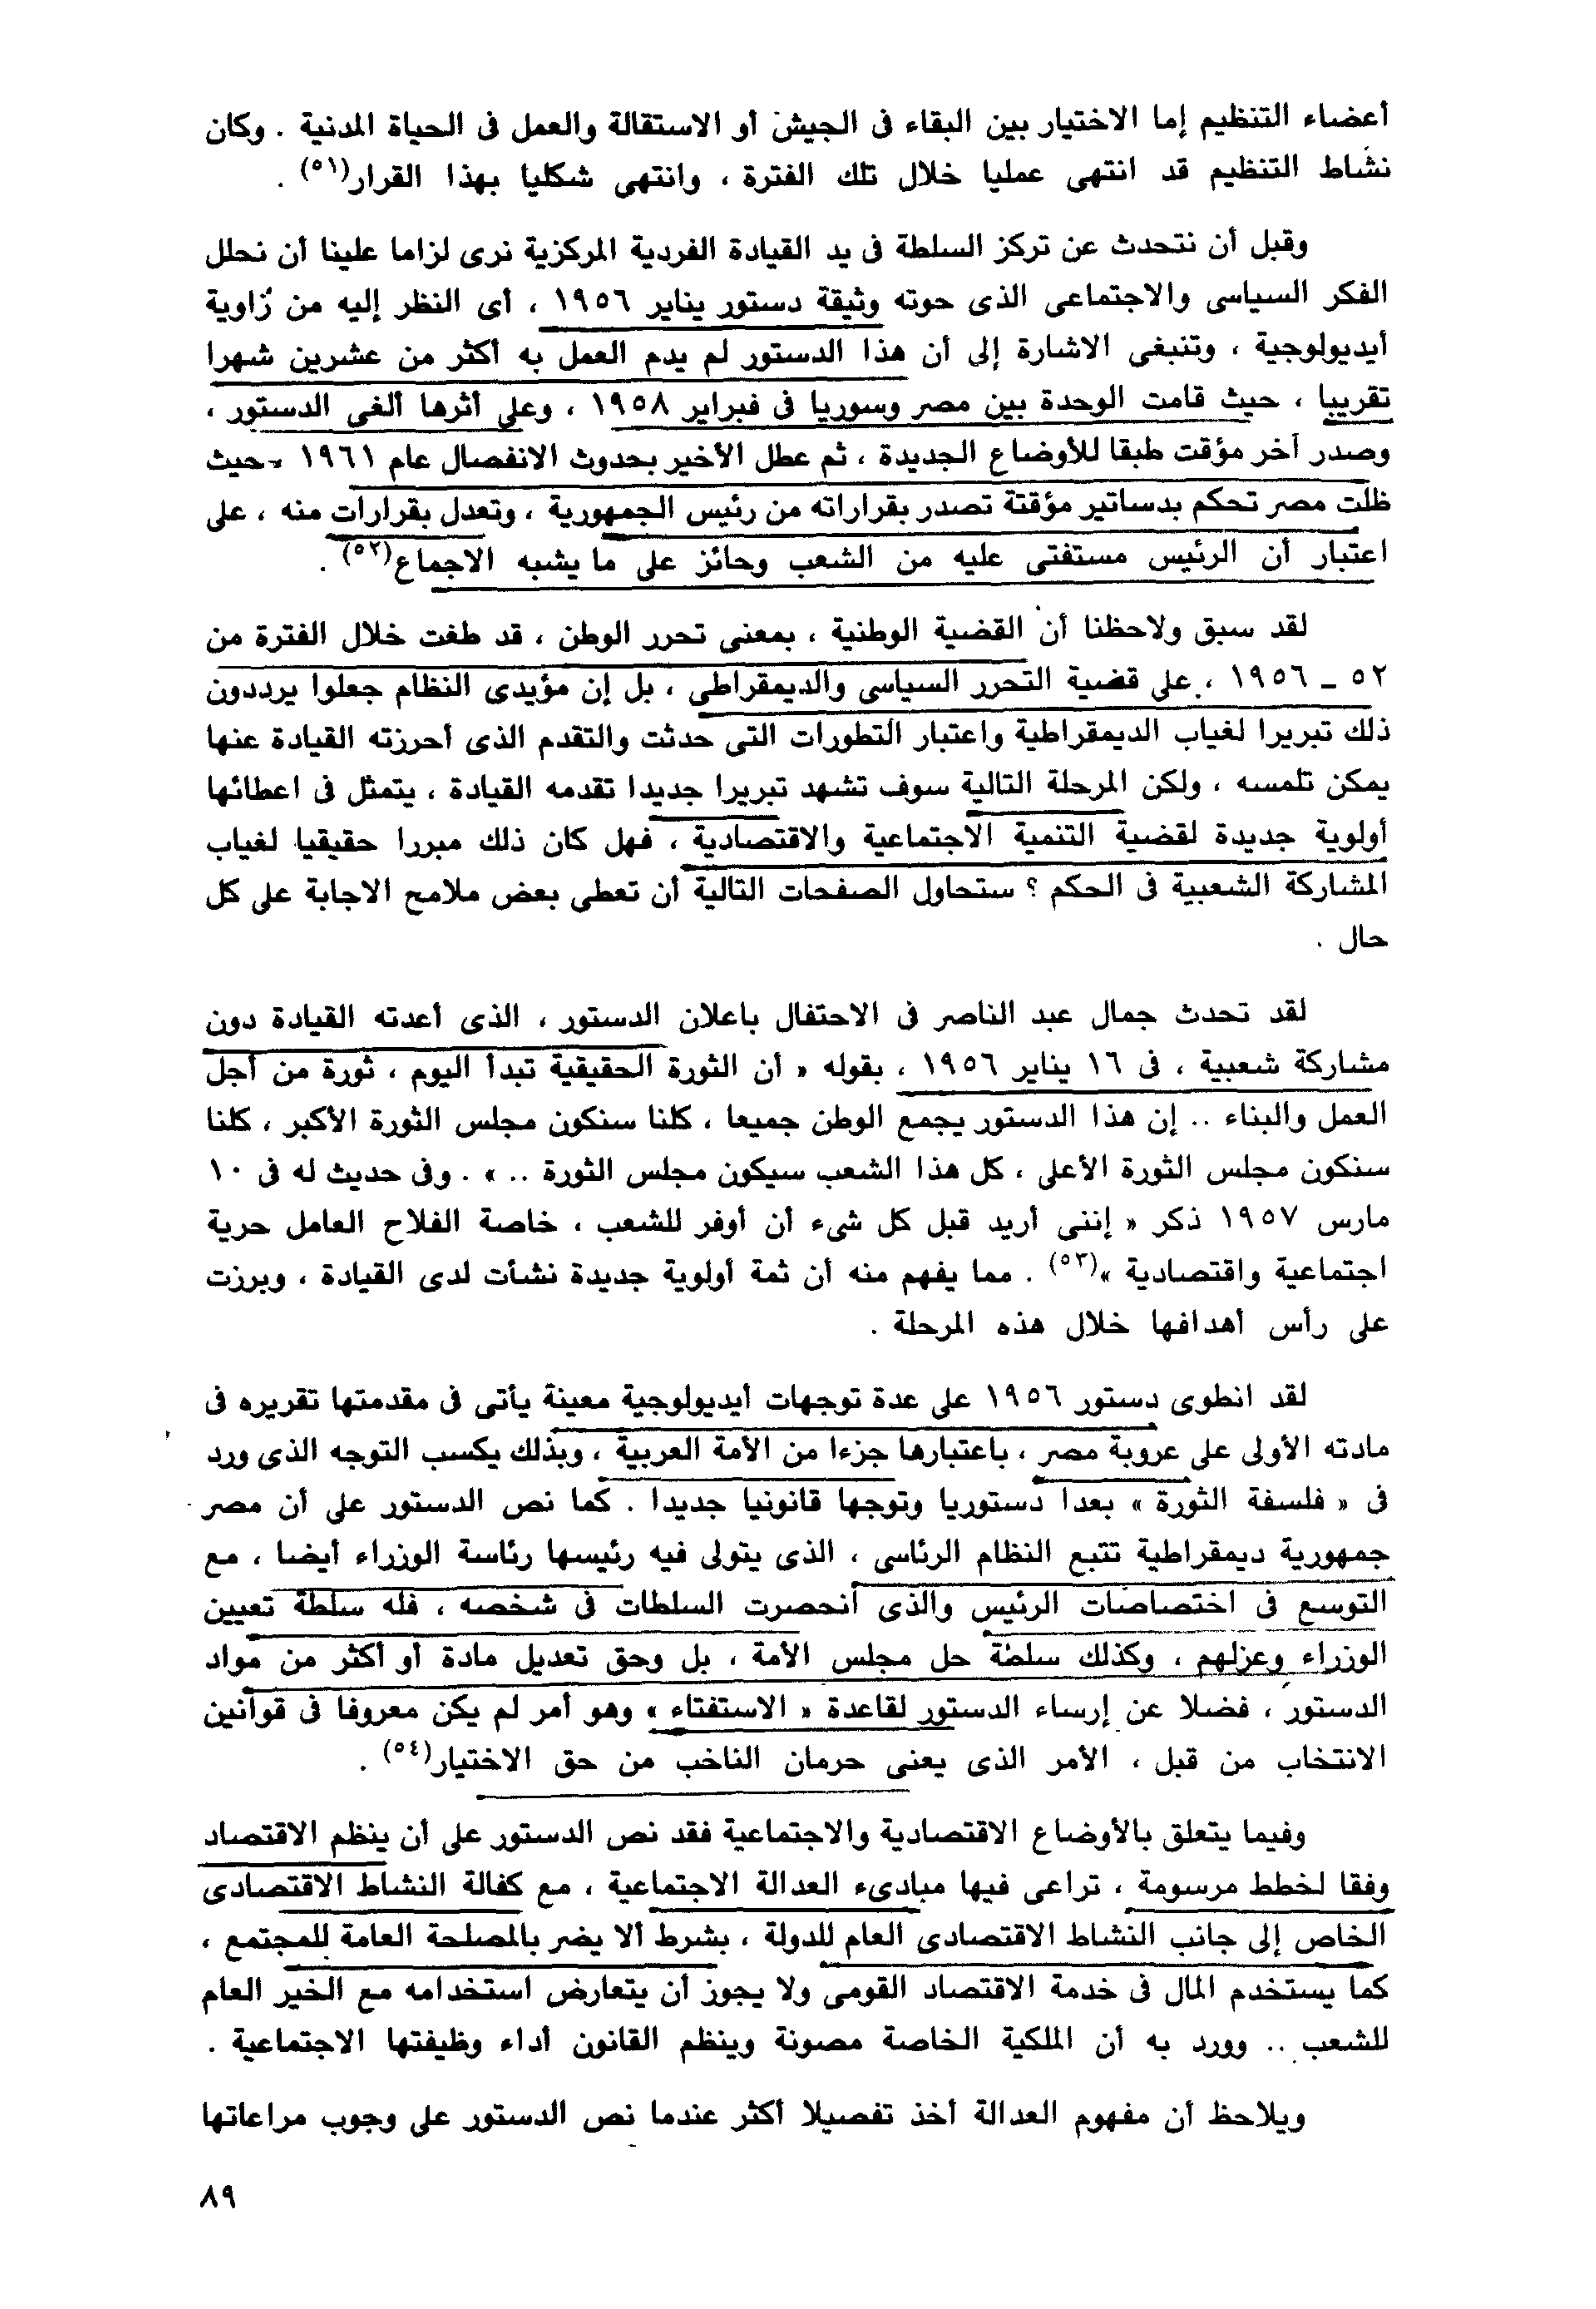 أعضاء التنظيم إما الاختيار بين البقاء فى الجيش أو الاستقالة والعمل فى الحياة المدنية . وكان
نشاط التنظيم قد انتهى عمليا خلال تلك الفترة ، وانتهى شكليا بهذا القرار(٥١) .
وقبل أن نتحدث عن تركز السلطة فى يد القيادة الفردية المركزية نرى لزاما علينا أن نحلل
الفكر السياسى والاجتماعى الذى حوته وثيقة دستور يناير ١٩٥٦ ، أى النظر إليه من زاوية
أيديولوجية ، وتنبغى الاشارة إلى أن هذا الدستور لم يدم العمل به أكثر من عشرين شهرا
تقريبا ، حيث قامت الوحدة بين مصر وسوريا فى فبراير ١٩٥٨ ، وعلى أثرها ألغى الدستور ،
وصدر آخر مؤقت طبقا للأوضاع الجديدة ، ثم عطل الأخير بحدوث الانفصال عام ١٩٦١ - حيث
ظلت مصر تحكم بدساتير مؤقتة تصدر بقراراته من رئيس الجمهورية ، وتعدل بقرارات منه ، على
اعتبار أن الرئيس مستفتى عليه من الشعب وحائز على ما يشبه الاجماع(٥٢) .
لقد سبق ولاحظنا أن القضية الوطنية ، بمعنى تحرر الوطن ، قد طغت خلال الفترة من
٥٢ ـ ١٩٥٦ ، على قضية التحرر السياسى والديمقراطى ، بل إن مؤيدى النظام جعلوا يرددون
ذلك تبريرا لغياب الديمقراطية واعتبار التطورات التى حدثت والتقدم الذى أحرزته القيادة عنها
يمكن تلمسه ، ولكن المرحلة التالية سوف تشهد تبريرا جديدا تقدمه القيادة ، يتمثل فى اعطائها
أولوية جديدة لقضية التنمية الاجتماعية والاقتصادية ، فهل كان ذلك مبررا حقيقيا لغياب
المشاركة الشعبية فى الحكم ؟ ستحاول الصفحات التالية أن تعطى بعض ملامح الاجابة على كل
حال .
لقد تحدث جمال عبد الناصر فى الاحتفال باعلان الدستور ، الذى أعدته القيادة دون
مشاركة شعبية ، فى ١٦ يناير ١٩٥٦ ، بقوله « أن الثورة الحقيقية تبدأ اليوم ، ثورة من أجل
العمل والبناء .. إن هذا الدستور يجمع الوطن جميعا ، كلنا سنكون مجلس الثورة الأكبر ، كلنا
سنكون مجلس الثورة الأعلى ، كل هذا الشعب سيكون مجلس الثورة .. » . وفى حديث له فى ١٠
مارس ١٩٥٧ ذكر « إننى أريد قبل كل شىء أن أوفر للشعب ، خاصة الفلاح العامل حرية
اجتماعية واقتصادية »(٥٣) . مما يفهم منه أن ثمة أولوية جديدة نشأت لدى القيادة ، وبرزت
على رأس أهدافها خلال هذه المرحلة .
لقد انطوى دستور ١٩٥٦ على عدة توجهات أيديولوجية معينة يأتى فى مقدمتها تقريره فى
مادته الأولى على عروبة مصر ، باعتبارها جزءا من الأمة العربية ، وبذلك يكسب التوجه الذى ورد
فى « فلسفة الثورة » بعدا دستوريا وتوجها قانونيا جديدا . كما نص الدستور على أن مصر
جمهورية ديمقراطية تتبع النظام الرئاسى ، الذى يتولى فيه رئيسها رئاسة الوزراء أيضا ، مع
التوسع فى اختصاصات الرئيس والذى أنحصرت السلطات فى شخصه ، فله سلطة تعيين
الوزراء وعزلهم ، وكذلك سلطة حل مجلس الأمة ، بل وحق تعديل مادة أو أكثر من مواد
الدستور ، فضلا عن إرساء الدستور لقاعدة « الاستفتاء » وهو أمر لم يكن معروفا فى قوانين
الانتخاب من قبل ، الأمر الذى يعنى حرمان الناخب من حق الاختيار(٥٤) .
وفيما يتعلق بالأوضاع الاقتصادية والاجتماعية فقد نص الدستور على أن ينظم الاقتصاد
وفقا لخطط مرسومة ، تراعى فيها مبادىء العدالة الاجتماعية ، مع كفالة النشاط الاقتصادى
الخاص إلى جانب النشاط الاقتصادى العام للدولة ، بشرط ألا يضر بالمصلحة العامة للمجتمع ،
كما يستخدم المال فى خدمة الاقتصاد القومى ولا يجوز أن يتعارض استخدامه مع الخير العام
للشعب .. وورد به أن الملكية الخاصة مصونة وينظم القانون أداء وظيفتها الاجتماعية .
ويلاحظ أن مفهوم العدالة أخذ تفصيلا أكثر عندما نص الدستور على وجوب مراعاتها
٨٩